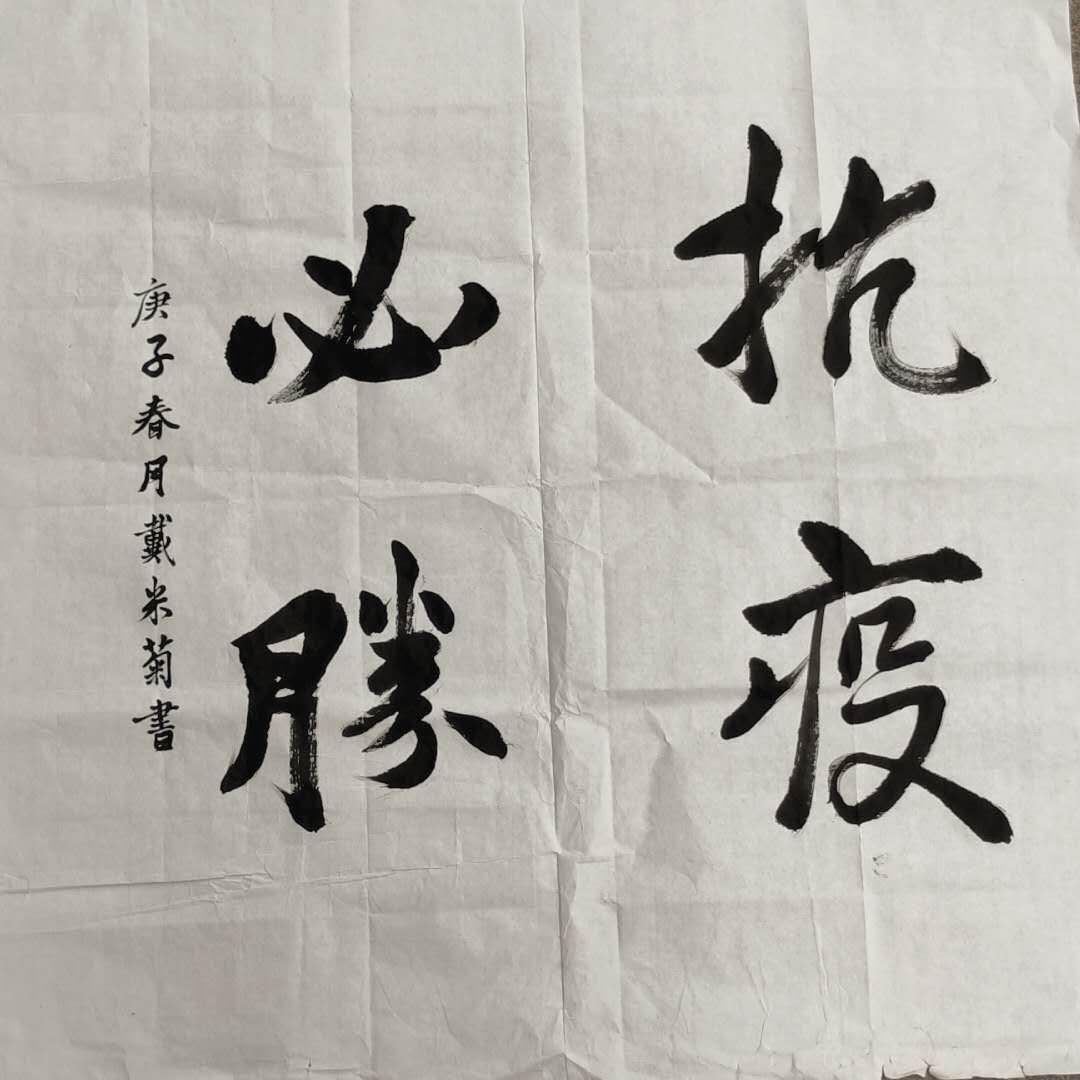 抗疫
必勝
庚子春月戴米菊書